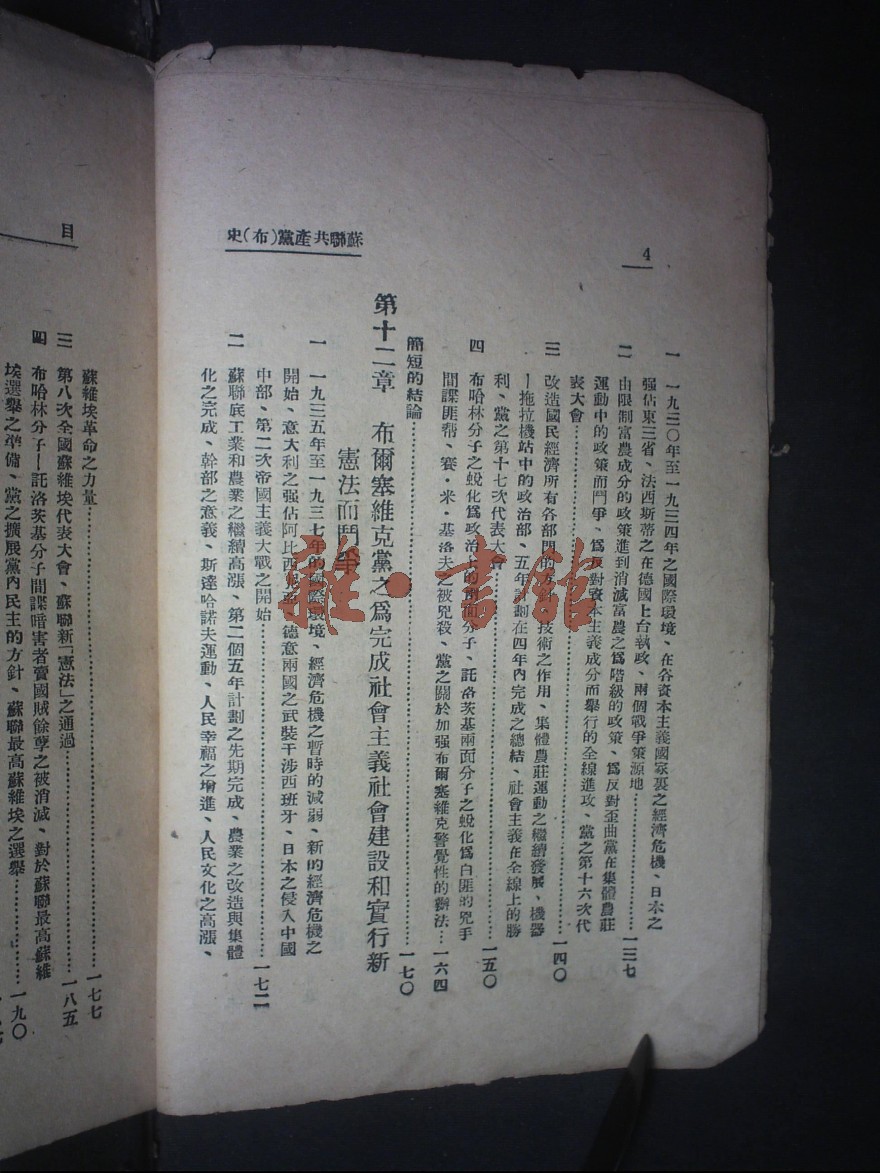 4
蘇聯共產黨(布)史
一 一九三〇年至一九三四年之國際環境、在各資本主義國家裏之經濟危機、日本之
强佔東三省、法西斯蒂之在德國上台執政、兩個戰爭策源地……一三七
二 由限制富農成分的政策進到消滅富農之爲階級的政策、爲反對歪曲黨在集體農莊
運動中的政策而鬥爭、爲反對資本主義成分而舉行的全線進攻、黨之第十六次代
表大會……一四〇
三 改造國民經濟所有各部門的方針、技術之作用、集體農莊運動之繼續發展、機器
—拖拉機站中的政治部、五年計劃在四年內完成之總結、社會主義在全線上的勝
利、黨之第十七次代表大會……一五〇
四 布哈林分子之蛻化爲政治上的兩面分子、託洛茨基兩面分子之蛻化爲白匪的兇手
間諜匪帮、賽·米·基洛夫之被兇殺、黨之關於加强布爾塞維克警覺性的辦法…一六四
簡短的結論……一七〇
第十二章 布爾塞維克黨之爲完成社會主義社會建設和實行新
憲法而鬥爭
一 一九三五年至一九三七年的國際環境、經濟危機之暫時的減弱、新的經濟危機之
開始、意大利之强佔阿比西尼亞、德意兩國之武裝干涉西班牙、日本之侵入中國
中部、第二次帝國主義大戰之開始……一七二
二 蘇聯底工業和農業之繼續高漲、第二個五年計劃之先期完成、農業之改造與集體
化之完成、幹部之意義、斯達哈諾夫運動、人民幸福之增進、人民文化之高漲、
目
蘇維埃革命之力量……一七七
三 第八次全國蘇維埃代表大會、蘇聯新「憲法」之通過……一八五
四 布哈林分子—託洛茨基分子間諜暗害者賣國賊餘孽之被消滅、對於蘇聯最高蘇維
埃選舉之準備、黨之擴展黨內民主的方針、蘇聯最高蘇維埃之選舉……一九〇
雅·書館